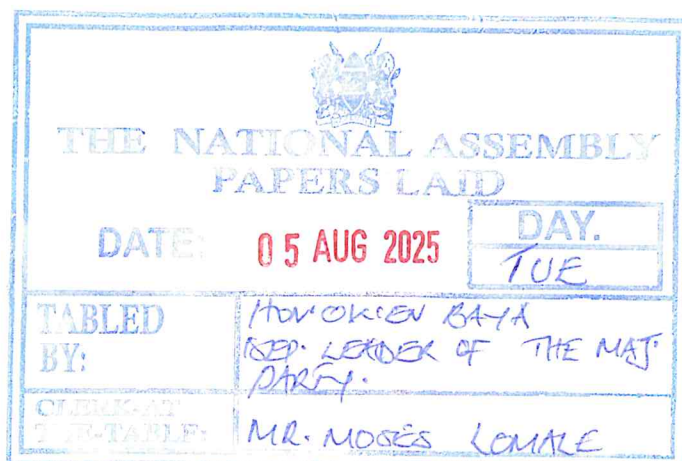 THE NATIONAL ASSEMBLY
PAPERS LAID
DATE: 05 AUG 2025
DAY.
TUE
TABLED BY:
HON. OWEN BAYA
DEP. LEADER OF THE MAJ.
PARTY.
CLERK-AT
THE-TABLE:
MR. MOSES LEMALE